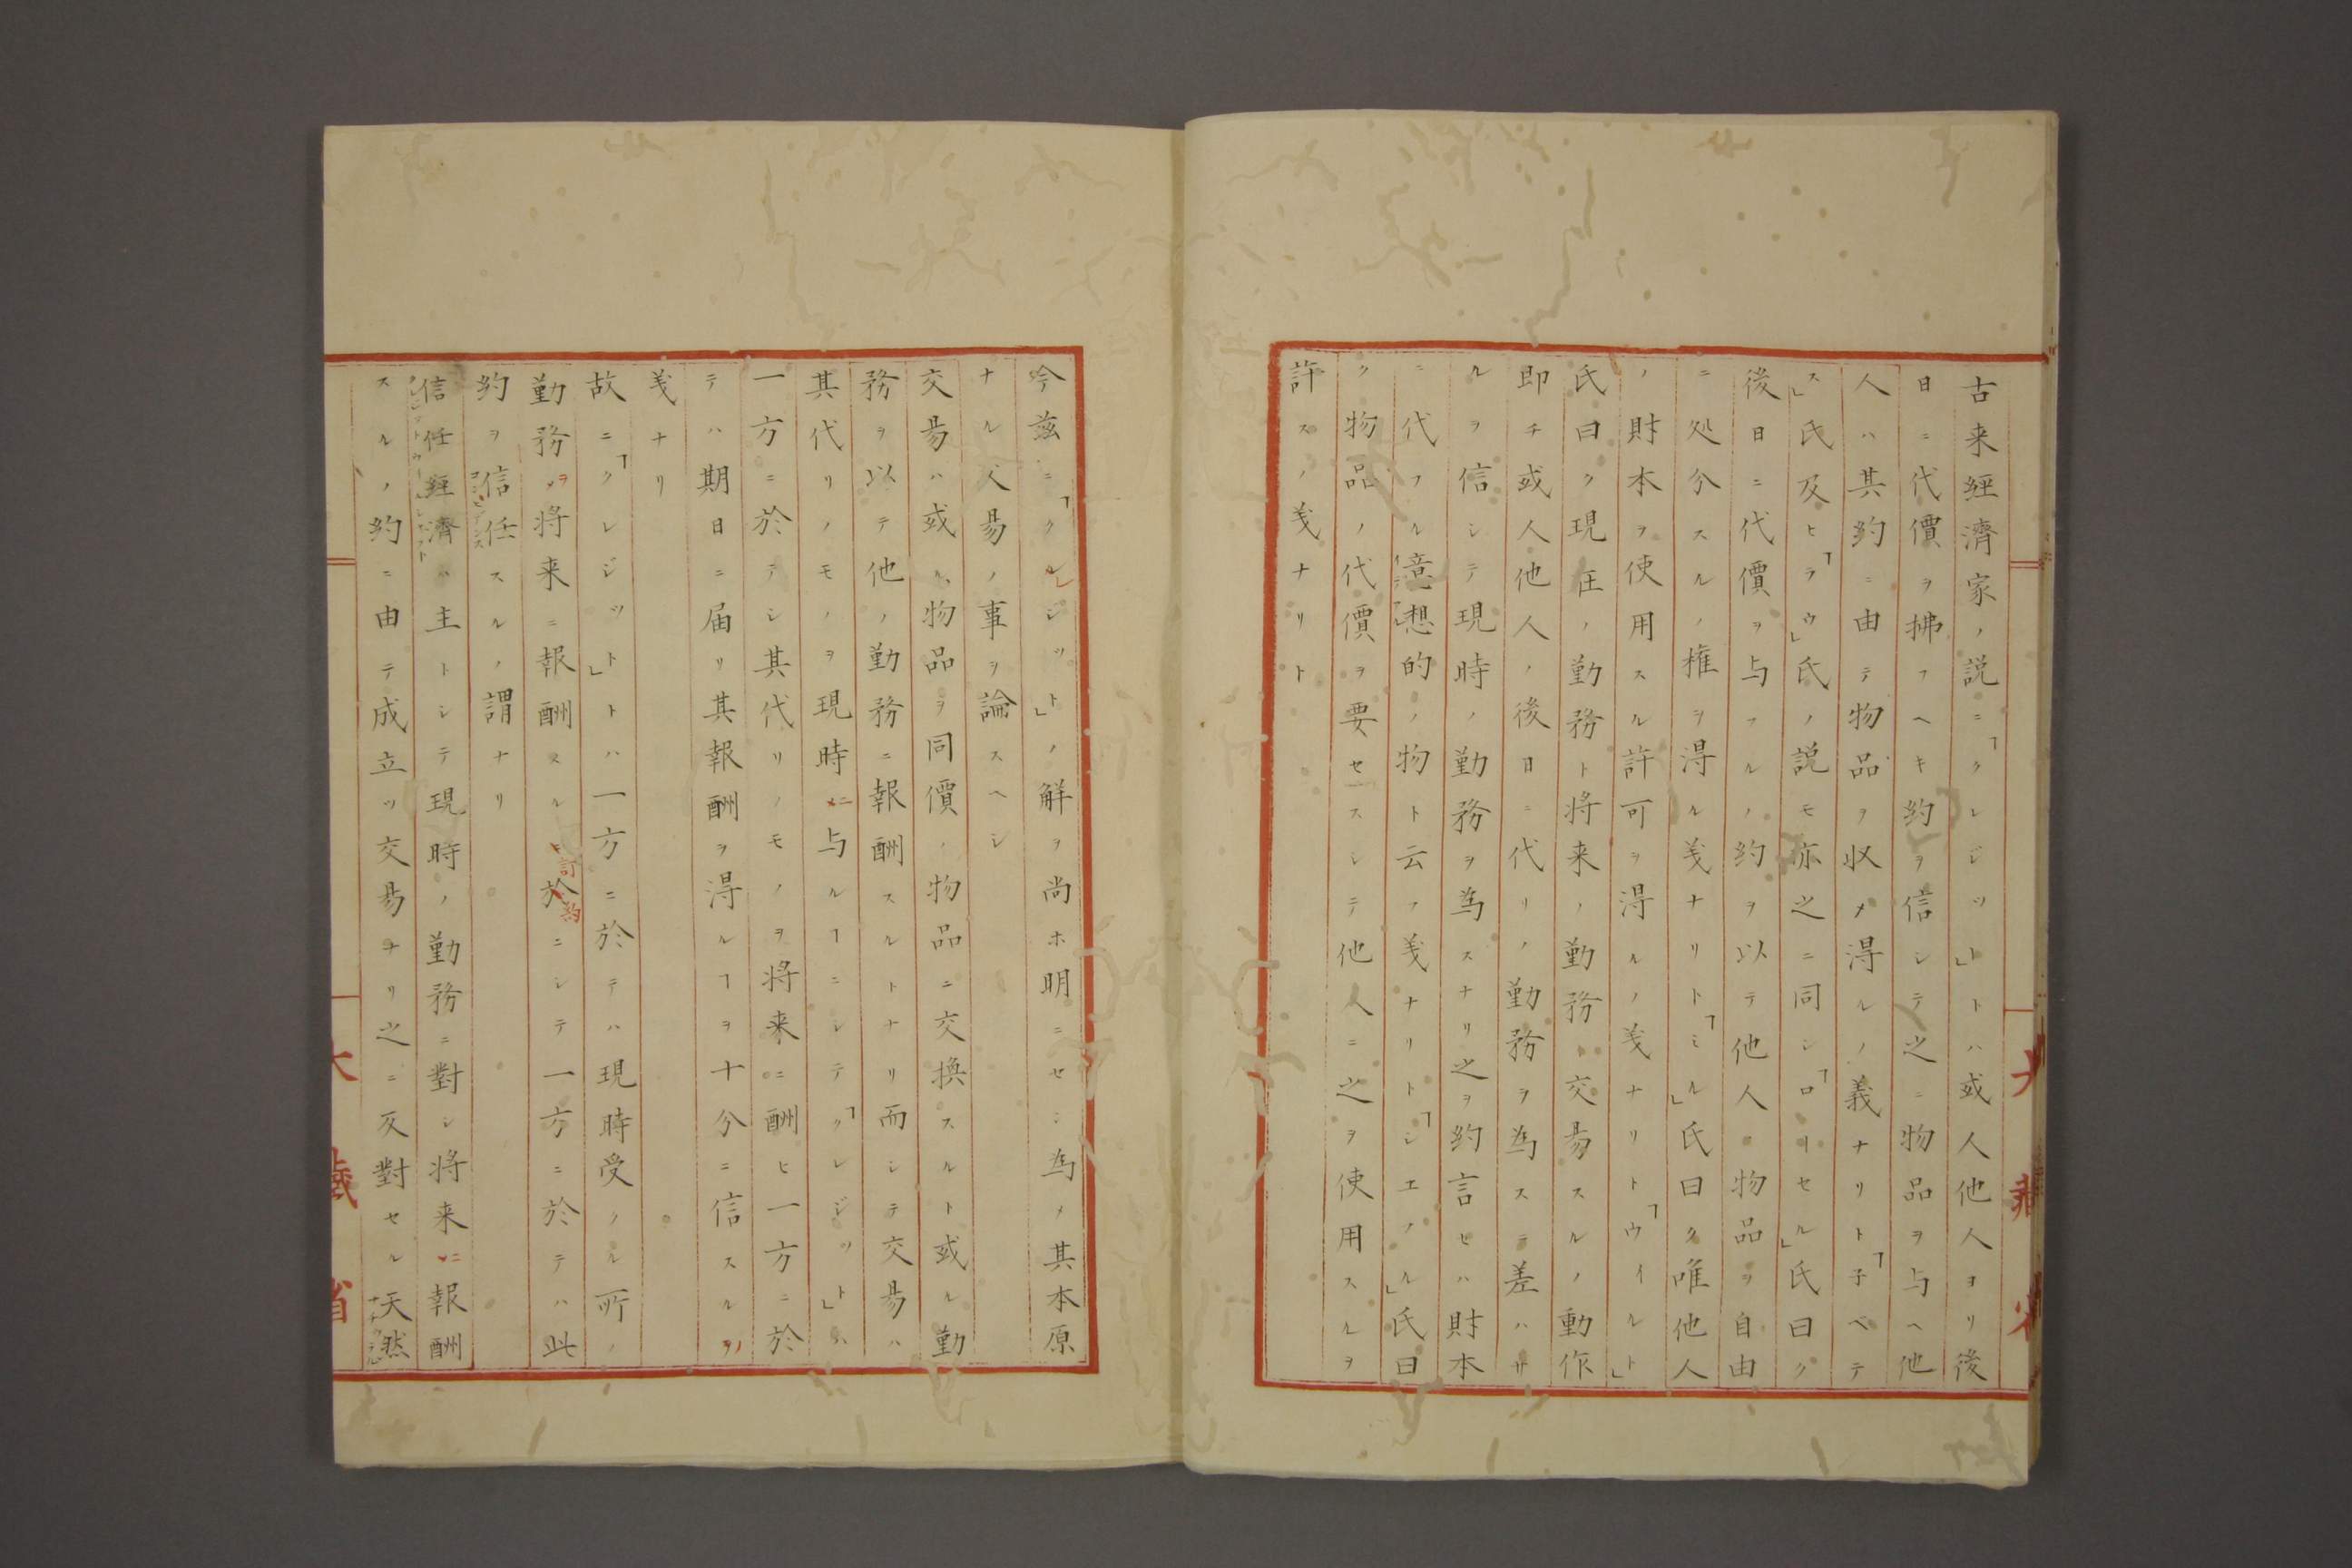 古来經濟家ノ説ニ「クレジット」トハ或人他人ヨリ後
日ニ代價ヲ拂フヘキ約ヲ信シテ之ニ物品ヲ与ヘ他
人ハ其約ニ由テ物品ヲ収メ得ルノ義ナリト「子ベテ
ス」氏及ヒ「ラウ」氏ノ説モ亦之ニ同シ「ローセル」氏曰ク
後日ニ代價ヲ与フルノ約ヲ以テ他人ノ物品ヲ自由
ニ処分スルノ権ヲ得ル義ナリト「ミル」氏曰ク唯他人
ノ財本ヲ使用スル許可ヲ得ルノ義ナリト「ウイルト」
氏曰ク現在ノ勤務ト将来ノ勤務ヲ交易スルノ動作
即チ或人他人ノ後日ニ代リノ勤務ヲ為ステ差ハサ
ルヲ信シテ現時ノ勤務ヲ為スナリ之ヲ約言セハ財本
ニ代フル意想的ノ物ト云フ義ナリト「シエノル」氏曰
ク物品ノ代價ヲ要セスシテ他人ニ之ヲ使用スルヲ
許スノ義ナリト
今茲ニ「クレジット」ノ解ヲ尚ホ明ニセン為メ其本原
ナル交易ノ事ヲ論スヘシ
交易ハ或ル物品ヲ同價ノ物品ニ交換スルト或ル勤
務ヲ以テ他ノ勤務ニ報酬スルトナリ而シテ交易ハ
其代リノモノヲ現時ニ与ルヿニシテ「クレジット」ハ
一方ニ於テシ其代リノモノヲ将来ニ酬ヒ一方ニ於
テハ期日ニ届リ其報酬ヲ得ルヿヲ十分ニ信スルノ
義ナリ
故ニ「クレジット」トハ一方ニ於テハ現時受ノル所ノ
勤務ヲ将来ニ報酬スル訂約ニシテ一方ニ於テハ此
約ヲ信任スルノ謂ナリ
信任經濟ハ主トシテ現時ノ勤務ニ對シ将来ニ報酬
スルノ約ニ由テ成立ツ交易ナリ之ニ反對セル天然
大藏省